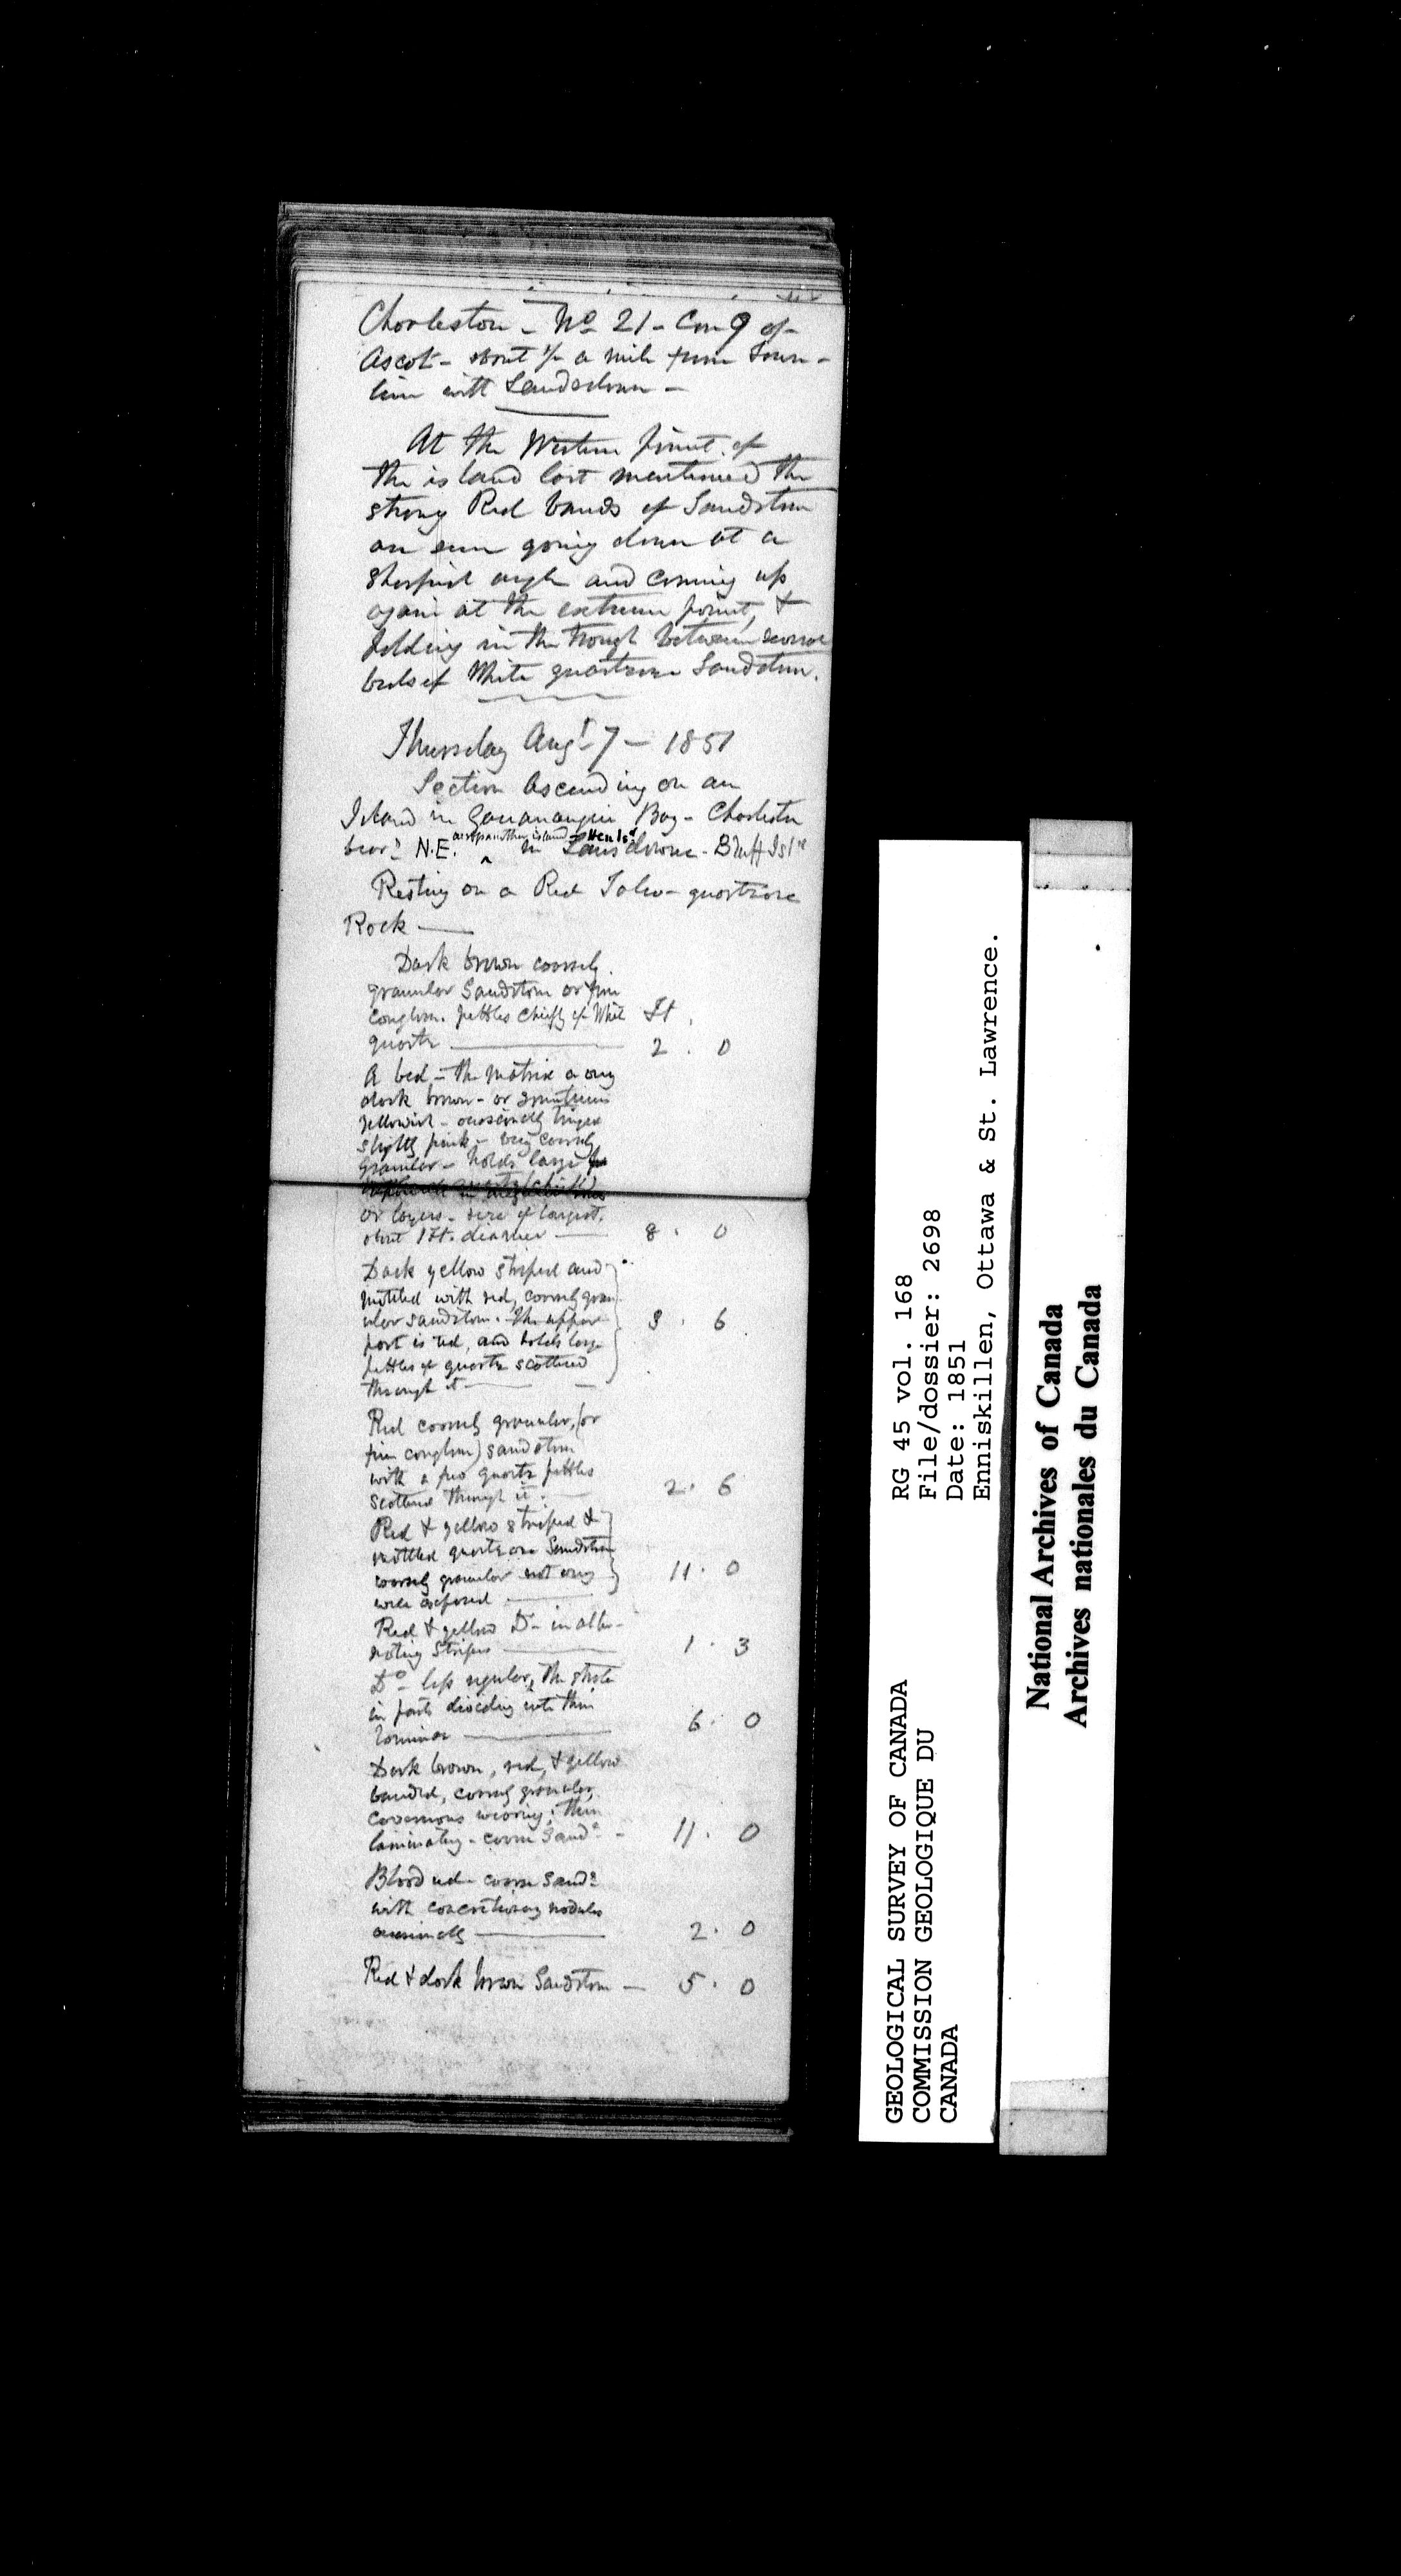 Charleston - No 21 - Con 9 of
Ascot - about 1/2 a mile from Town-
line with Landsdown -
At the Western point of
the island last mentioned the
strong Red bands of Sandstone
are seen going down at a
sharpish angle and coming up
again at the extreme point, &
folding in the trough between several
beds of White quartzose Sandstone.
Thursday Augt 7 - 1851
Section Ascending on an
Island in Gananoquie Bay - Charleston
bears N.E. across another island Hen Isd in Lansdowne - Bluff Isld
Resting on a Red Talco-quartzose
Rock
Dark brown coarsely
granular Sandstone or fine
conglom. pebbles chiefly of White Ft.
quartz 2 . 0
A bed - the matrix a very
dark brown - or sometimes
yellowish - occasionally tinged
slightly pink - very coarsely
granular - holds large
or layers - size of largest
about 1 Ft. diameter 8 . 0
Dark yellow striped and
mottled with red, coarsely gran-
ular sandstone. The upper 3 . 6
part is red, and holds large
pebbles of quartz scattered
through it
Red coarsely granular, (or
fine conglom) sandstone
with a few quartz pebbles
scattered through it. 2 . 6
Red & yellow striped &
mottled quartzose Sandstone
coarsely granular not very 11 . 0
well exposed
Red & yellow Do in alter-
nating stripes 1 . 3
Do less regular, the strata
in parts dividing into thin
laminae 6 . 0
Dark brown, red, & yellow
banded, coarsely granular,
cavernous wearing, thin
laminating - coarse Sande 11 . 0
Blood red coarse sande
with concretionary nodules
occasionally 2 . 0
Red & dark brown Sandstone - 5 . 0
GEOLOGICAL SURVEY OF CANADA
COMMISSION GEOLOGIQUE DU
CANADA
RG 45 vol. 168
File/dossier: 2698
Date: 1851
Enniskillen, Ottawa & St. Lawrence.
National Archives of Canada
Archives nationales du Canada